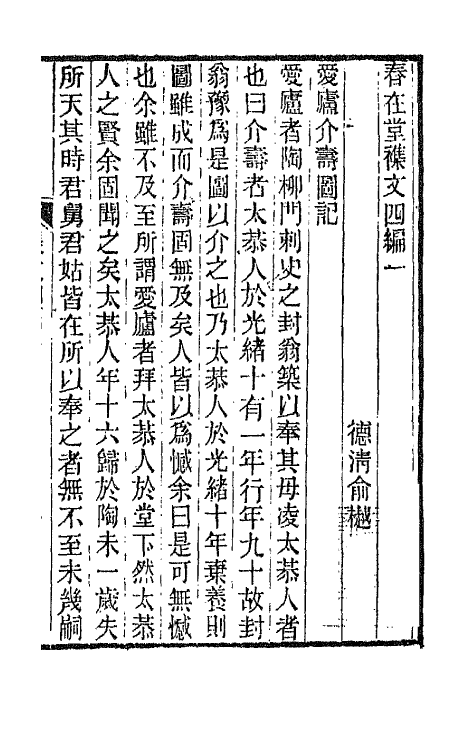 春在堂襍文四編一
德清俞樾
愛廬介壽圖記
愛廬者陶柳門刺史之封翁築以奉其母凌太恭人者
也曰介壽者太恭人於光緒十有一年行年九十故封
翁豫爲是圖以介之也乃太恭人於光緒十年棄養則
圖雖成而介壽固無及矣人皆以爲憾余曰是可無憾
也余雖不及至所謂愛廬者拜太恭人於堂下然太恭
人之賢余固聞之矣太恭人年十六歸於陶未一歲失
所天其時君舅君姑皆在所以奉之者無不至未幾嗣